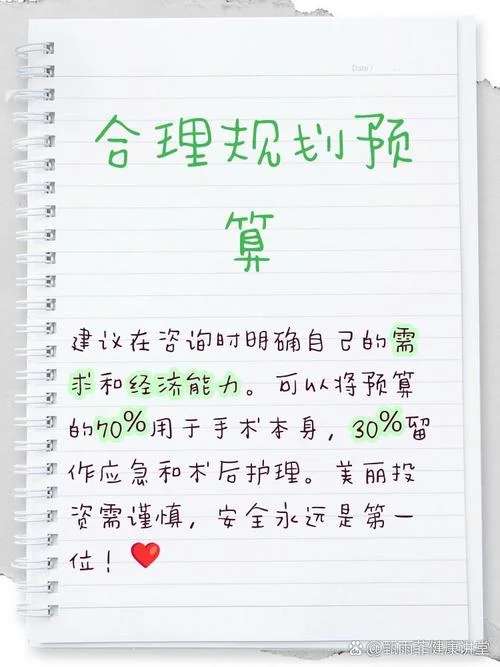 Date /
合理规划预
算
建议在咨询时明确自己的需
求和经济能力。可以将预算
的70%用于手术本身，30%留
作应急和术后护理。美丽投
资需谨慎，安全永远是第一
位！
@甄雨菲健康讲堂